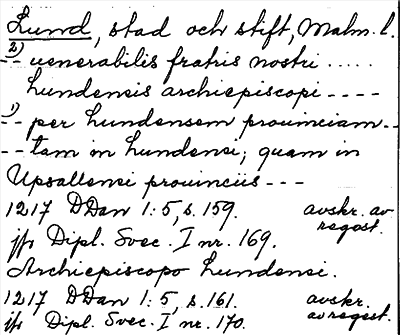 Lund, stad och stift, Malm. l.
2)
-- uenerabilis fratris nostri .....
Lundensis archiepiscopi ----
1)
-- per Lundensem prouinciam --
-- tam in Lundensi; quam in
Upsallensi prouinciis ---
1217 DDan 1:5, s. 159. avskr. av
regest.
jfr Dipl. Svec. I nr. 169.
Archiepiscopo Lundensi.
1217 DDan 1:5, s. 161. avskr.
jfr Dipl. Svec. I nr. 170. av regest.